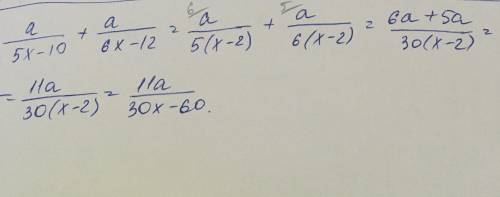 a/(5x-10) + a/(6x-12) = ⁶ a/(5(x-2)) + ⁵ a/(6(x-2)) = (6a+5a)/(30(x-2)) =
= 11a/(30(x-2)) = 11a/(30x-60).